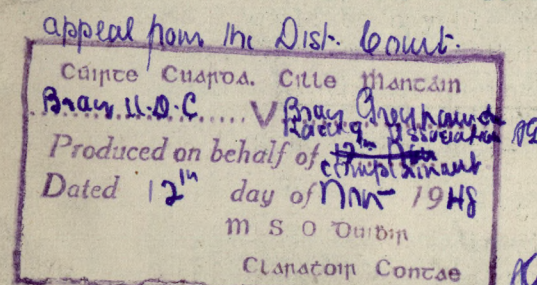 appeal from the Dist. Court.
Cúirte Cuarda. Cille Mantáin
Bray U.D.C ..... V Bray Greyhound
Racing Association
Produced on behalf of
Complainant
Dated 12th day of Nov 1948
M S O Duibir
Claratoir Contae